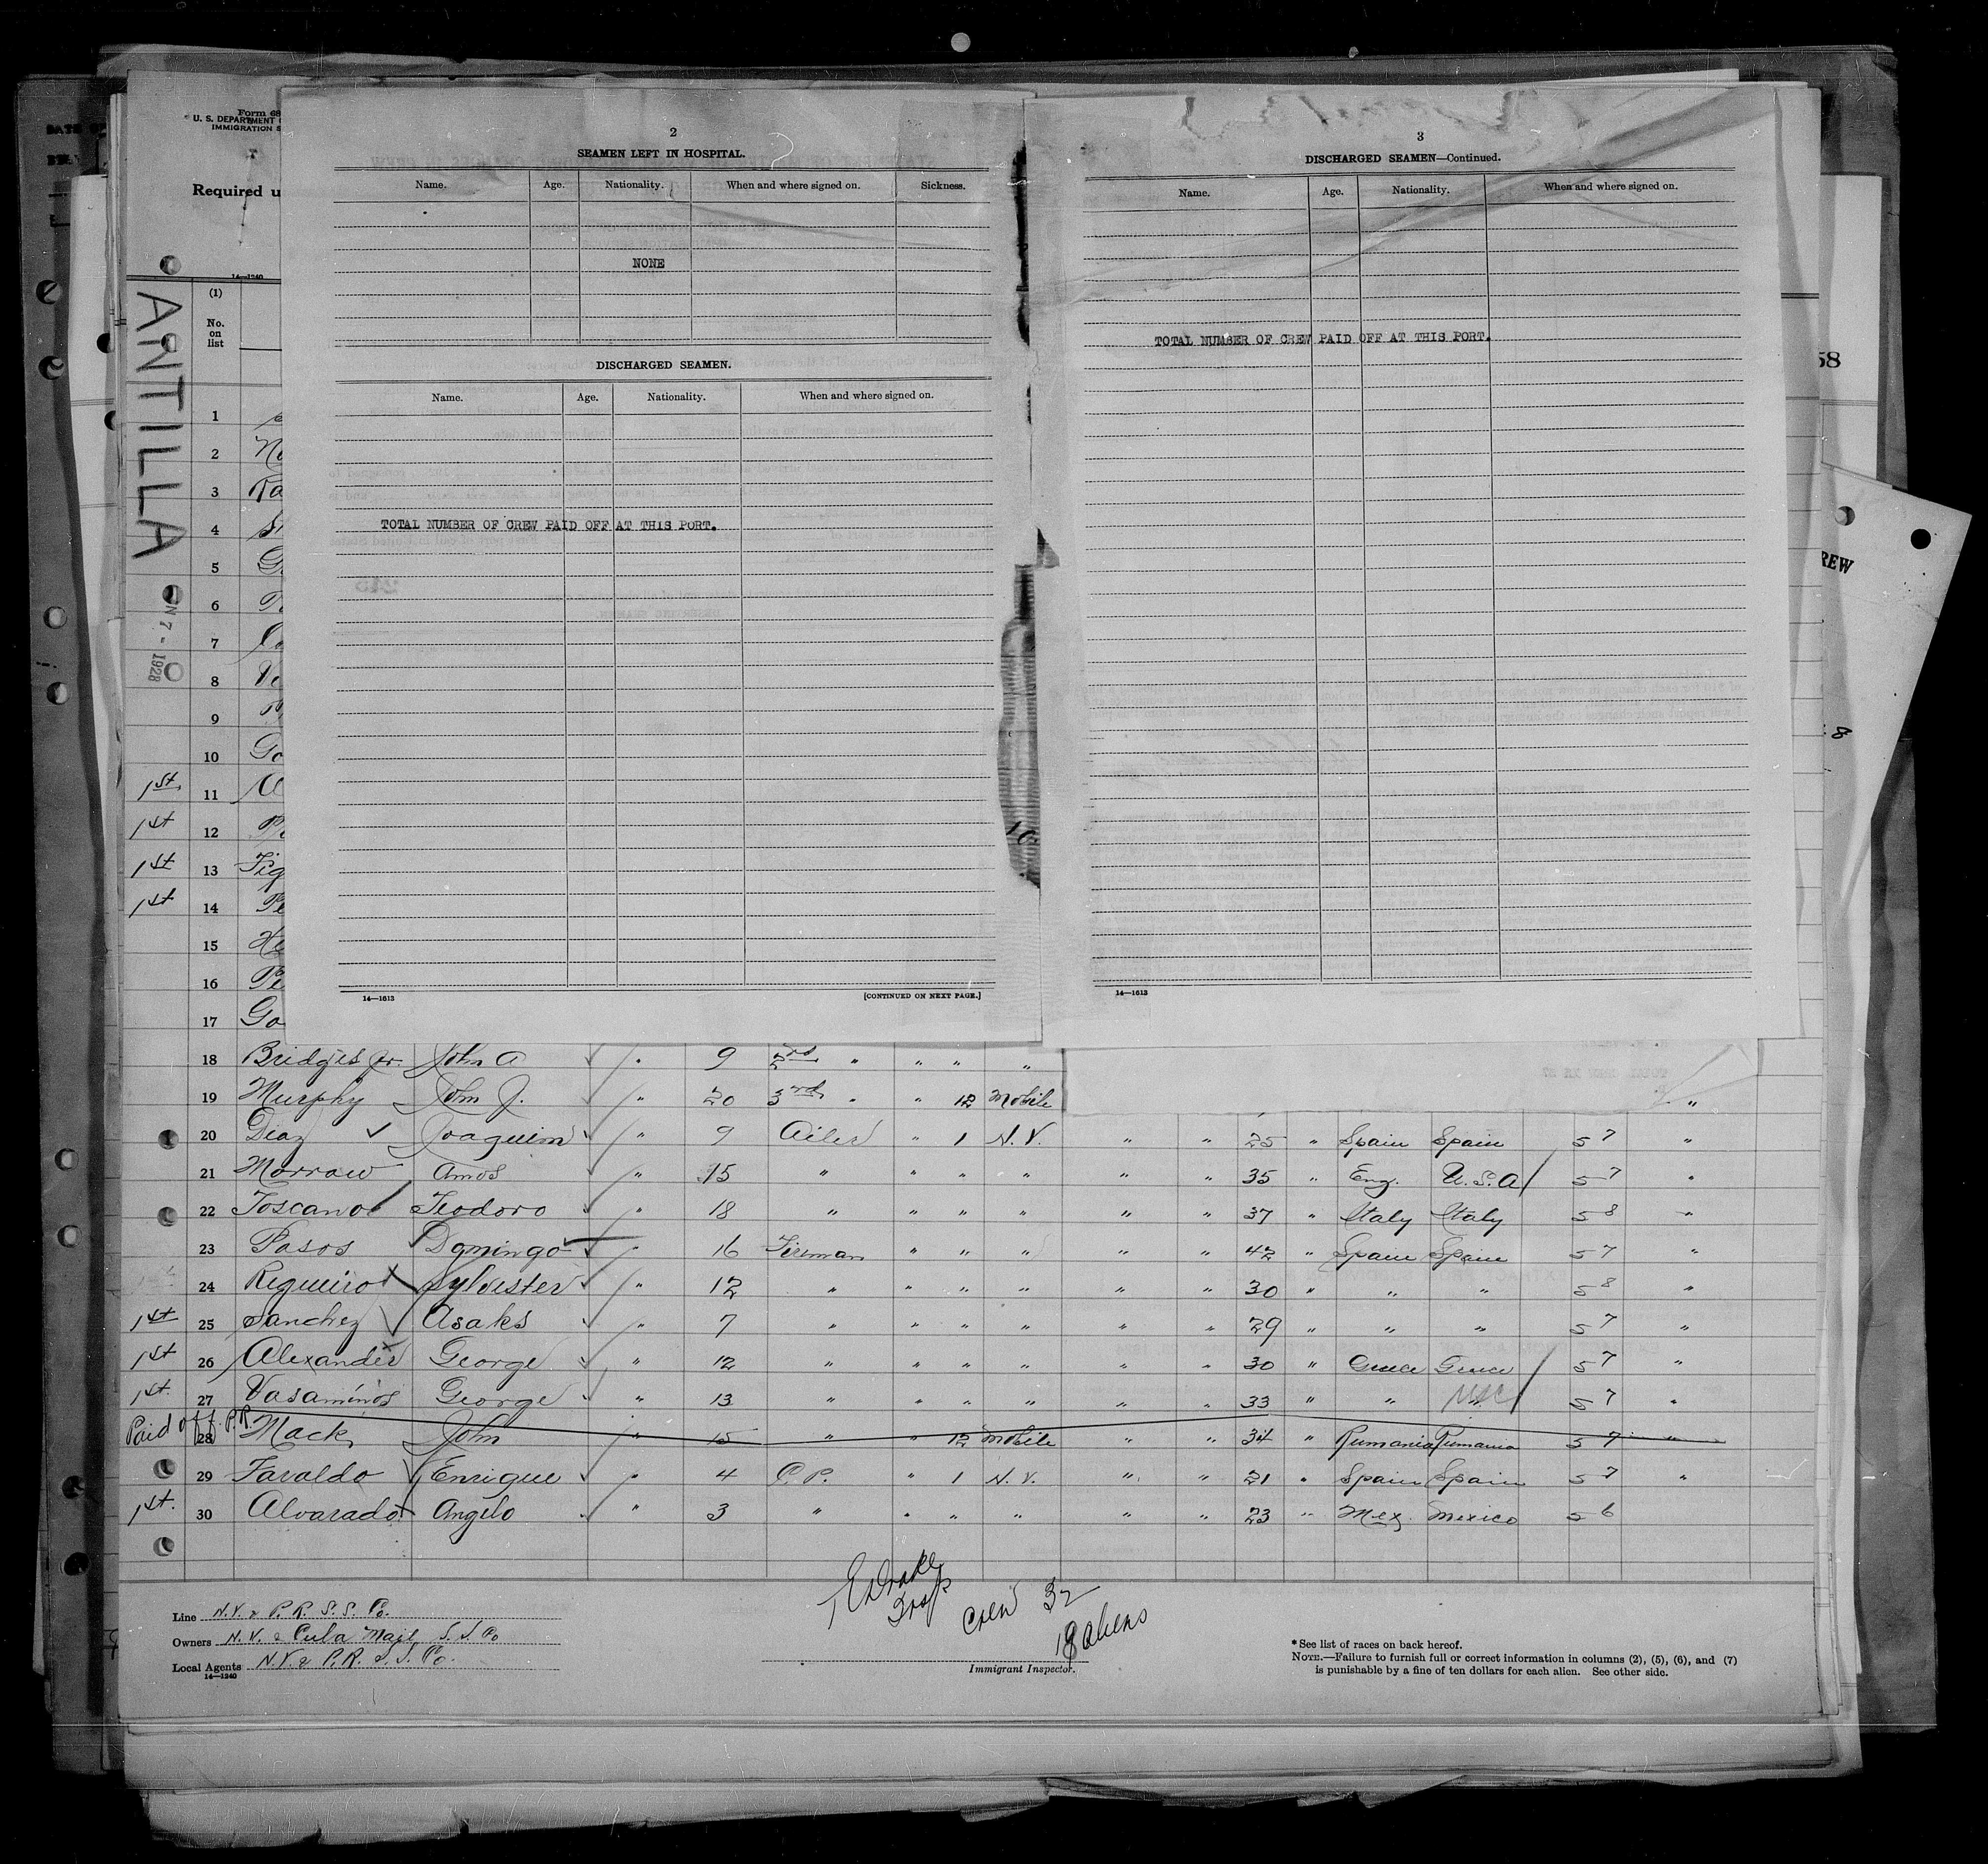 Form 68
U. S. DEPARTMENT
IMMIGRATION S
Required u
14—1240
ANTILLA
N 7 - 1928
(1)
No.
on
list
2
SEAMEN LEFT IN HOSPITAL.
Name. Age. Nationality. When and where signed on. Sickness.
NONE
DISCHARGED SEAMEN.
Name. Age. Nationality. When and where signed on.
TOTAL NUMBER OF CREW PAID OFF AT THIS PORT.
14—1613 [CONTINUED ON NEXT PAGE.]
3
DISCHARGED SEAMEN—Continued.
Name. Age. Nationality. When and where signed on.
TOTAL NUMBER OF CREW PAID OFF AT THIS PORT.
14—1613
58
REW
8
1
2 No
3 Ra
4
5
6
7
8
9
10 Go
1st 11
1st 12
1st 13 Fig
1st 14 Pe
15 He
16 Pe
17 Go
18 Bridges Jr. John A " 9 2nd " " " "
19 Murphy John J. " 20 3rd " " 12 Mobile "
20 Diaz Joaquim " 9 Oiler " 1 N.Y. " " 25 " Spain Spain 5 7 "
21 Morrow Amos " 15 " " " " " " 35 " Eng. U.S.A 5 7 "
22 Toscano Teodoro " 18 " " " " " " 37 " Italy Italy 5 8 "
23 Pasos Domingo " 16 Fireman " " " " " 42 " Spain Spain 5 7 "
24 Regueiro Sylvester " 12 " " " " " " 30 " " " 5 8 "
1st 25 Sanchez Asaks " 7 " " " " " " 29 " " " 5 7 "
1st 26 Alexander George " 12 " " " " " " 30 " Greece Greece 5 7 "
1st. 27 Vasaminos George " 13 " " " " " " 33 " " " 5 7 "
Paid off P.R. 28 Mack John " 15 " " 12 Mobile " " 34 " Rumania Rumania 5 7 "
29 Faraldo Enrique " 4 C.P. " 1 N.Y. " " 21 " Spain Spain 5 7 "
1st. 30 Alvarado Angelo " 3 " " " " " " 23 " Mex. Mexico 5 6
Drake
Insp
Crew 32
18 aliens
Line N.Y. & P.R. S.S. Co.
Owners N.Y. & Cuba Mail S.S. Co
Local Agents N.Y. & P.R. S.S. Co.
14—1240
Immigrant Inspector.
* See list of races on back hereof.
NOTE.—Failure to furnish full or correct information in columns (2), (5), (6), and (7)
is punishable by a fine of ten dollars for each alien. See other side.